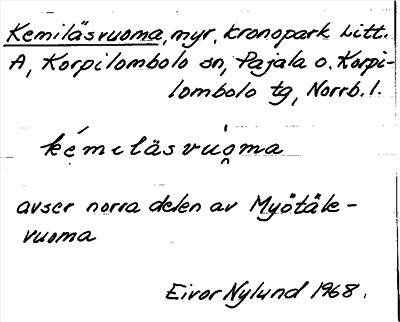 Kemiläsvuoma, myr, kronopark Litt.
A, Korpilombolo sn, Pajala o. Korpi-
lombolo tg, Norrb. l.
kémiläsvu̯ò̯ma
avser norra delen av Myötäle-
vuoma
Eivor Nylund 1968.